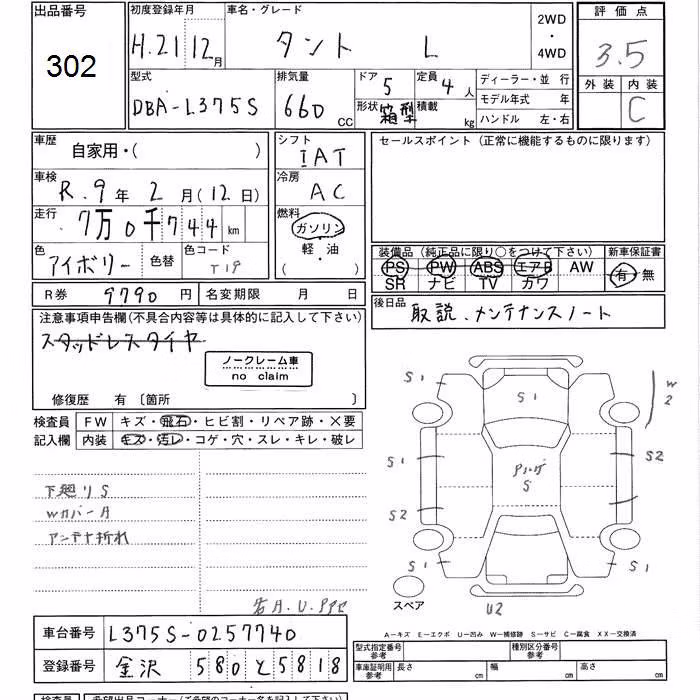 出品番号
302
初度登録年月
H.21 12月
車名・グレード
タント L
2WD
・
4WD
評価点
3.5
外装 内装
C
型式
DBA-L375S
排気量
660 CC
ドア
5
形状
箱型
定員
4 人
積載
kg
ディーラー・並行
モデル年式 年
ハンドル 左・右
車歴
自家用・( )
シフト
IAT
車検
R.9年2月(12日)
冷房
AC
走行
7万0千744km
燃料
ガソリン
軽・油
( )
色
アイボリー
色替
色コード
T19
R券 9790円
名変期限 月 日
セールスポイント(正常に機能するものに限ります)
装備品(純正品に限り○をつけて下さい)
PS PW ABS エアB AW
SR ナビ TV カワ
新車保証書
有・無
後日品
取説.メンテナンスノート
注意事項申告欄(不具合内容等は具体的に記入して下さい)
スタッドレスタイヤ
ノークレーム車
no claim
修復歴 有〔箇所 〕
検査員
記入欄
FW キズ・飛石・ヒビ割・リペア跡・×要
内装 キズ・汚レ・コゲ・穴・スレ・キレ・破レ
下廻りS
Wカバー月
アンテナ折れ
S1
S1
W2
S1
S2
S
S2
S1
S1
U2
スペア
A-キズ E-エクボ U-凹み W-補修跡 S-サビ C-腐食 XX-交換済
車台番号 L375S-0257740
登録番号 金沢 580 と 5818
型式指定番号
参考
種別区分番号
参考
車庫証明用
参考
長さ cm 幅 cm 高さ cm